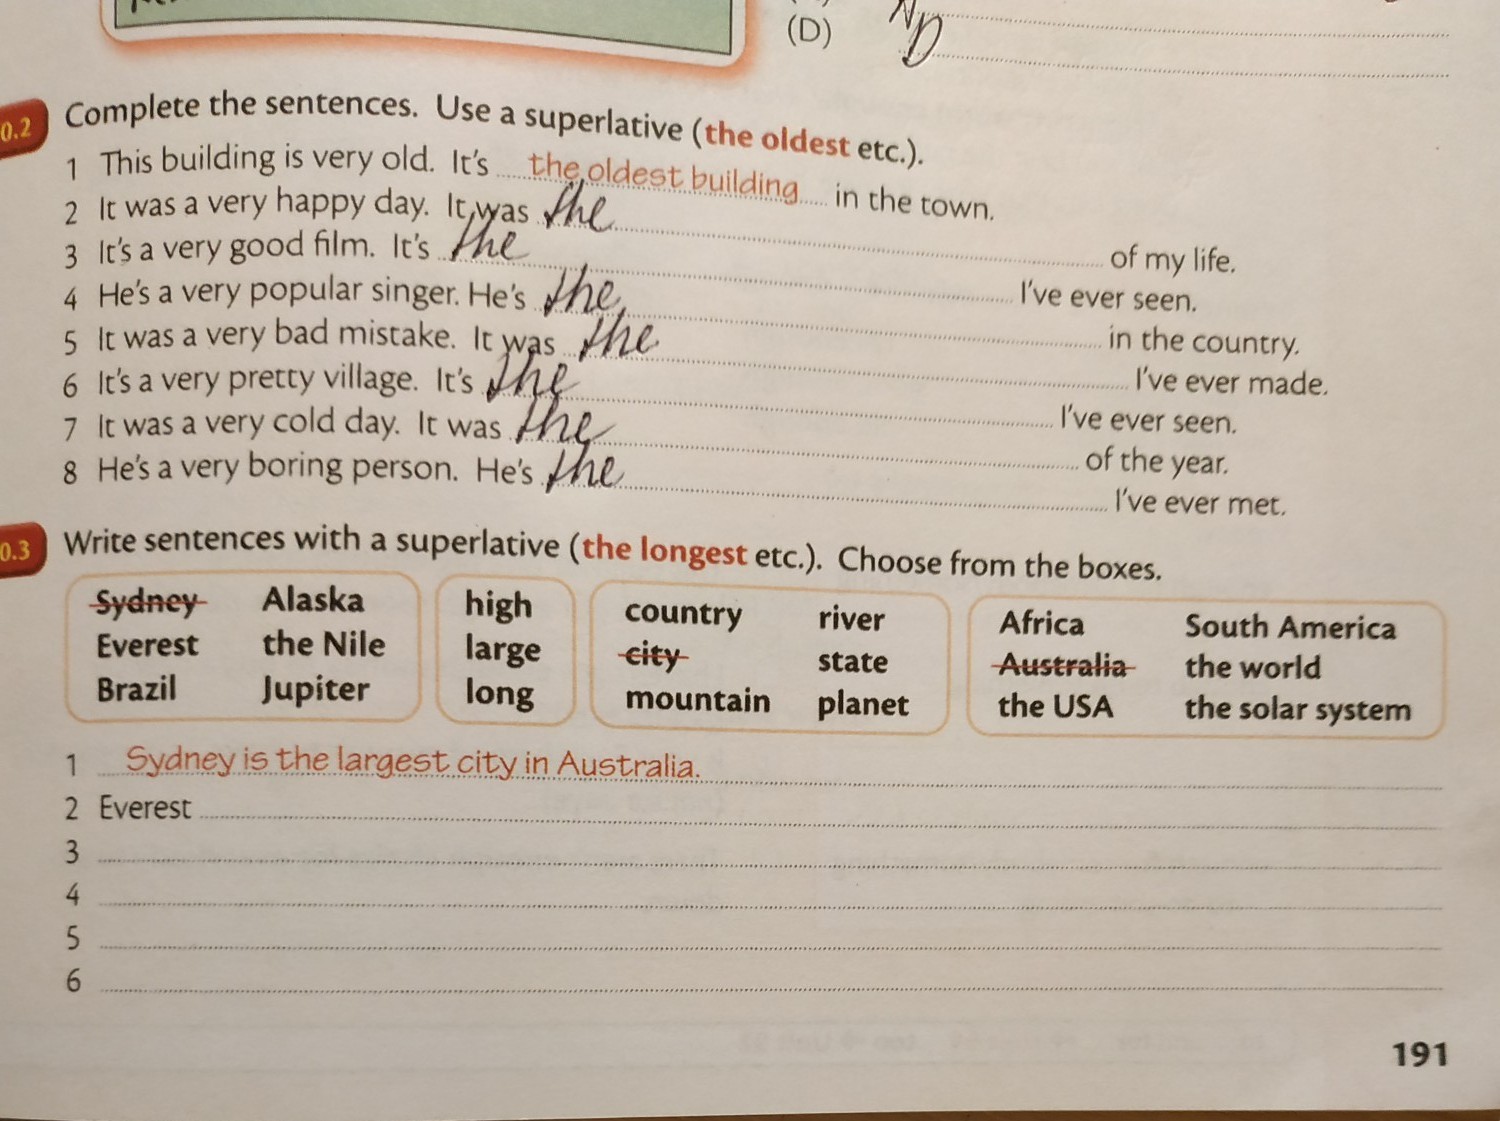 (D) D
0.2 Complete the sentences. Use a superlative (the oldest etc.).
1 This building is very old. It's the oldest building in the town.
2 It was a very happy day. It was the of my life.
3 It's a very good film. It's the I've ever seen.
4 He's a very popular singer. He's the in the country.
5 It was a very bad mistake. It was the I've ever made.
6 It's a very pretty village. It's the I've ever seen.
7 It was a very cold day. It was the of the year.
8 He's a very boring person. He's the I've ever met.
0.3 Write sentences with a superlative (the longest etc.). Choose from the boxes.
Sydney Alaska high country river Africa South America
Everest the Nile large city state Australia the world
Brazil Jupiter long mountain planet the USA the solar system
1 Sydney is the largest city in Australia.
2 Everest
3
4
5
6
191